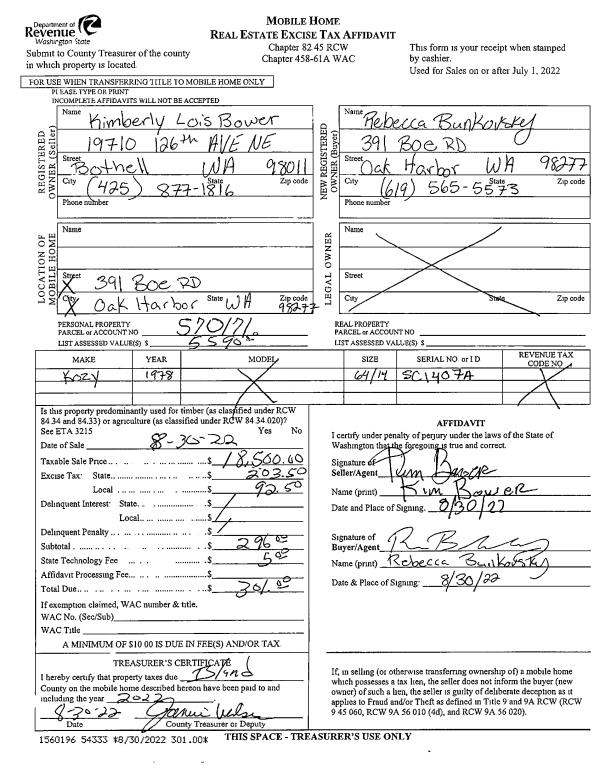 Department of
Revenue
Washington State
MOBILE HOME
REAL ESTATE EXCISE TAX AFFIDAVIT
Chapter 82 45 RCW
Chapter 458-61A WAC
Submt to County Treasurer of the county
in which property is located.
This form is your receipt when stamped
by cashier.
Used for Sales on or after July 1, 2022
FOR USE WHEN TRANSFERRING TITLE TO MOBILE HOME ONLY
PLEASE TYPE OR PRINT
INCOMPLETE AFFIDAVITS WILL NOT BE ACCEPTED
REGISTERED OWNER (Seller)
Name Kimberly Lois Bower
19710 126th AVE NE
Street Bothell WA 98011
City State Zip code
(425) 877-1816
Phone number
NEW REGISTERED OWNER (Buyer)
Name Rebecca Bunkovsky
391 BOE RD
Street Oak Harbor WA 98277
City State Zip code
(619) 565-5573
Phone number
LOCATION OF MOBILE HOME
Name
Street X 391 BOE RD
City X Oak Harbor State WA Zip code 98277
LEGAL OWNER
Name
Street
City State Zip code
PERSONAL PROPERTY
PARCEL or ACCOUNT NO 570171.
LIST ASSESSED VALUE(S) $ 5590
REAL PROPERTY
PARCEL or ACCOUNT NO
LIST ASSESSED VALUE(S) $
MAKE YEAR MODEL SIZE SERIAL NO. or I D REVENUE TAX CODE NO
Kozy 1978 64/14 SC1407A
Is this property predominantly used for timber (as classified under RCW
84.34 and 84.33) or agriculture (as classified under RCW 84.34.020)?
See ETA 3215 Yes No
Date of Sale 8-30-22
Taxable Sale Price $ 18,500.00
Excise Tax: State $ 203.50
Local $ 92.50
Delinquent Interest: State $
Local $
Delinquent Penalty $
Subtotal $ 296.00
State Technology Fee $ 5.00
Affidavit Processing Fee $
Total Due $ 301.00
If exemption claimed, WAC number & title.
WAC No. (Sec/Sub)
WAC Title
A MINIMUM OF $10 00 IS DUE IN FEE(S) AND/OR TAX
AFFIDAVIT
I certify under penalty of perjury under the laws of the State of
Washington that the foregoing is true and correct.
Signature of
Seller/Agent Kim Bower
Name (print) Kim Bower
Date and Place of Signing. 8/30/22
Signature of
Buyer/Agent
Name (print) Rebecca Bunkovsky
Date & Place of Signing: 8/30/22
TREASURER'S CERTIFICATE
I hereby certify that property taxes due Island
County on the mobile home described hereon have been paid to and
including the year 2022
8-30-22
Date County Treasurer or Deputy
If, in selling (or otherwise transferring ownership of) a mobile home
which possesses a tax lien, the seller does not inform the buyer (new
owner) of such a lien, the seller is guilty of deliberate deception as it
applies to Fraud and/or Theft as defined in Title 9 and 9A RCW (RCW
9 45 060, RCW 9A 56 010 (4d), and RCW 9A 56 020).
1560196 54333 *8/30/2022 301.00*
THIS SPACE - TREASURER'S USE ONLY